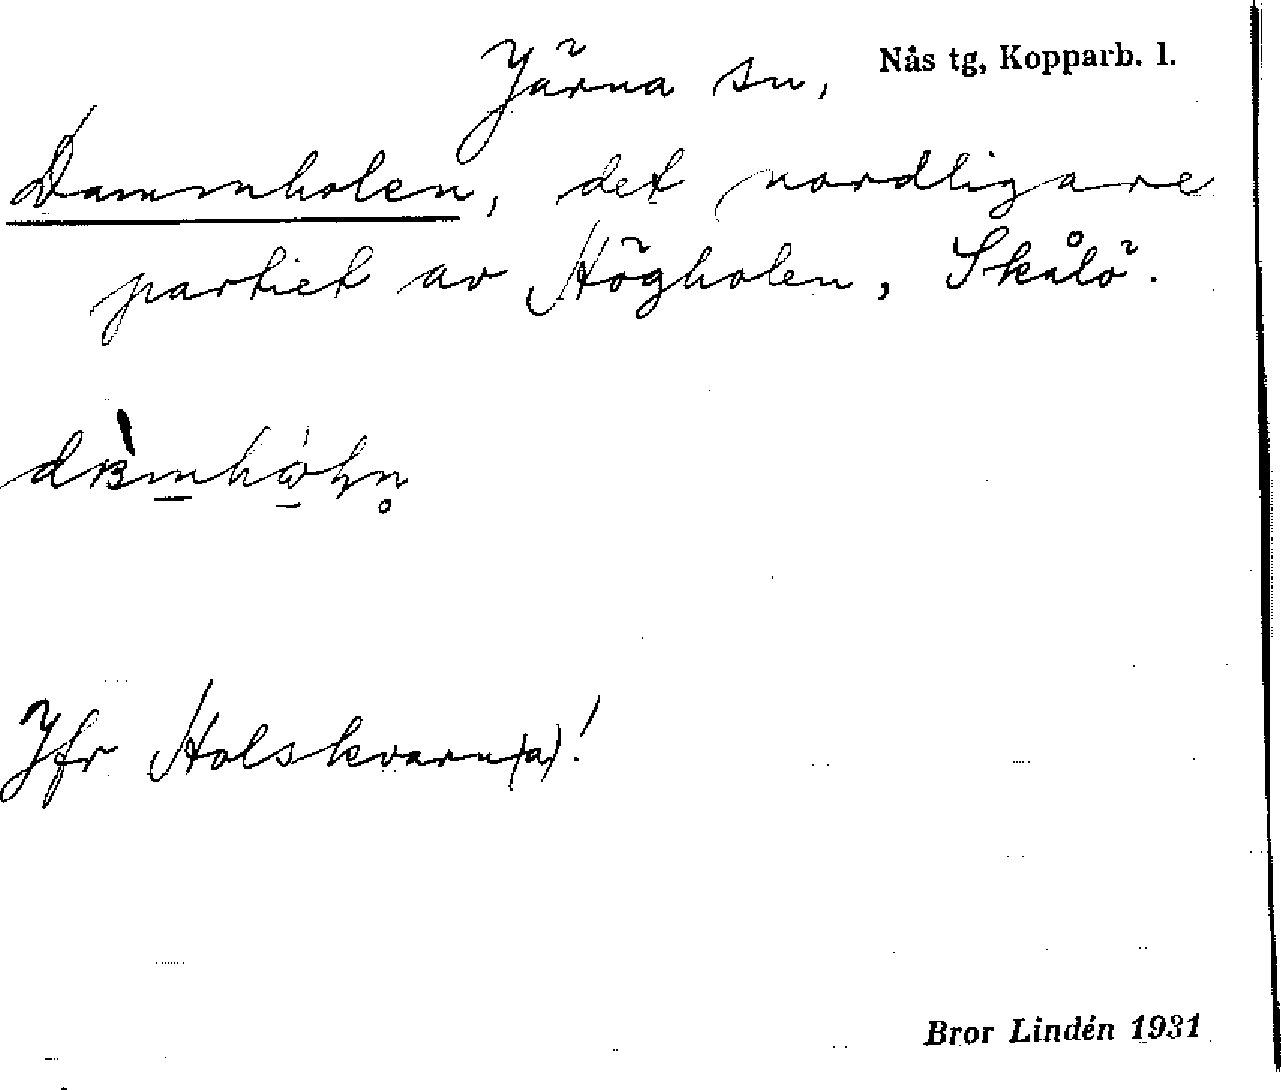 Järna sn, Nås tg, Kopparb. l.
Dammholen, det nordligare
partiet av Högholen, Skålö.
Jfr Holskvarn(a)!
Bror Lindén 1931